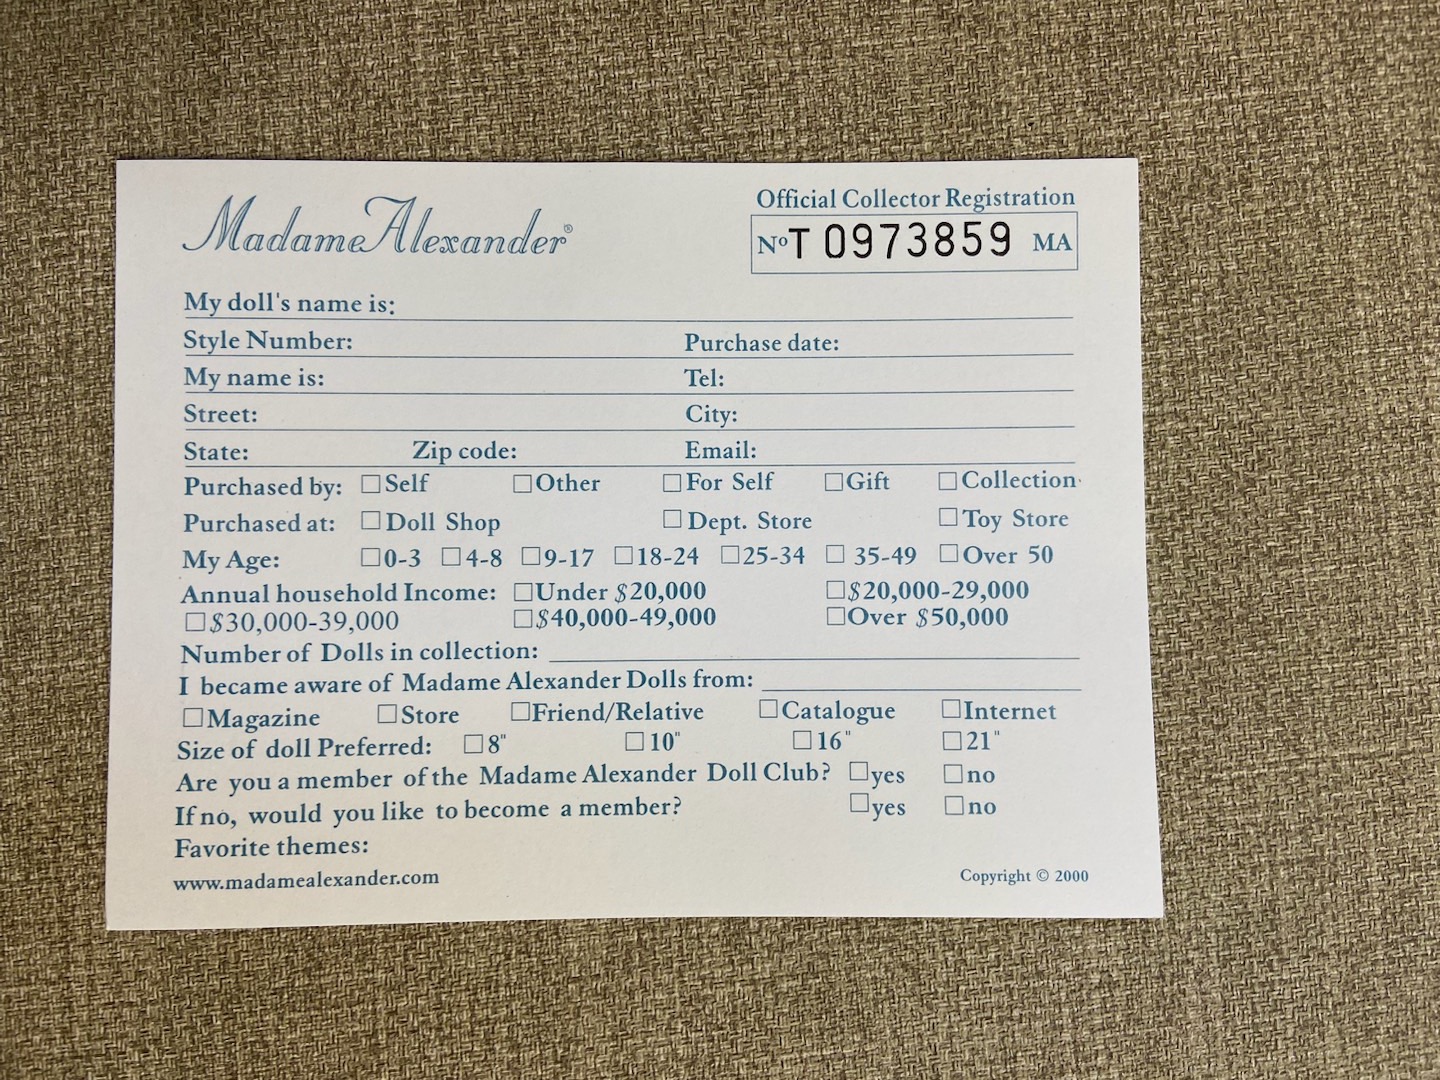 Madame Alexander®
Official Collector Registration
Nº T 0973859 MA
My doll's name is:
Style Number: Purchase date:
My name is: Tel:
Street: City:
State: Zip code: Email:
Purchased by: ☐ Self ☐ Other ☐ For Self ☐ Gift ☐ Collection
Purchased at: ☐ Doll Shop ☐ Dept. Store ☐ Toy Store
My Age: ☐ 0-3 ☐ 4-8 ☐ 9-17 ☐ 18-24 ☐ 25-34 ☐ 35-49 ☐ Over 50
Annual household Income: ☐ Under $20,000 ☐ $20,000-29,000
☐ $30,000-39,000 ☐ $40,000-49,000 ☐ Over $50,000
Number of Dolls in collection:
I became aware of Madame Alexander Dolls from:
☐ Magazine ☐ Store ☐ Friend/Relative ☐ Catalogue ☐ Internet
Size of doll Preferred: ☐ 8" ☐ 10" ☐ 16" ☐ 21"
Are you a member of the Madame Alexander Doll Club? ☐ yes ☐ no
If no, would you like to become a member? ☐ yes ☐ no
Favorite themes:
www.madamealexander.com Copyright © 2000